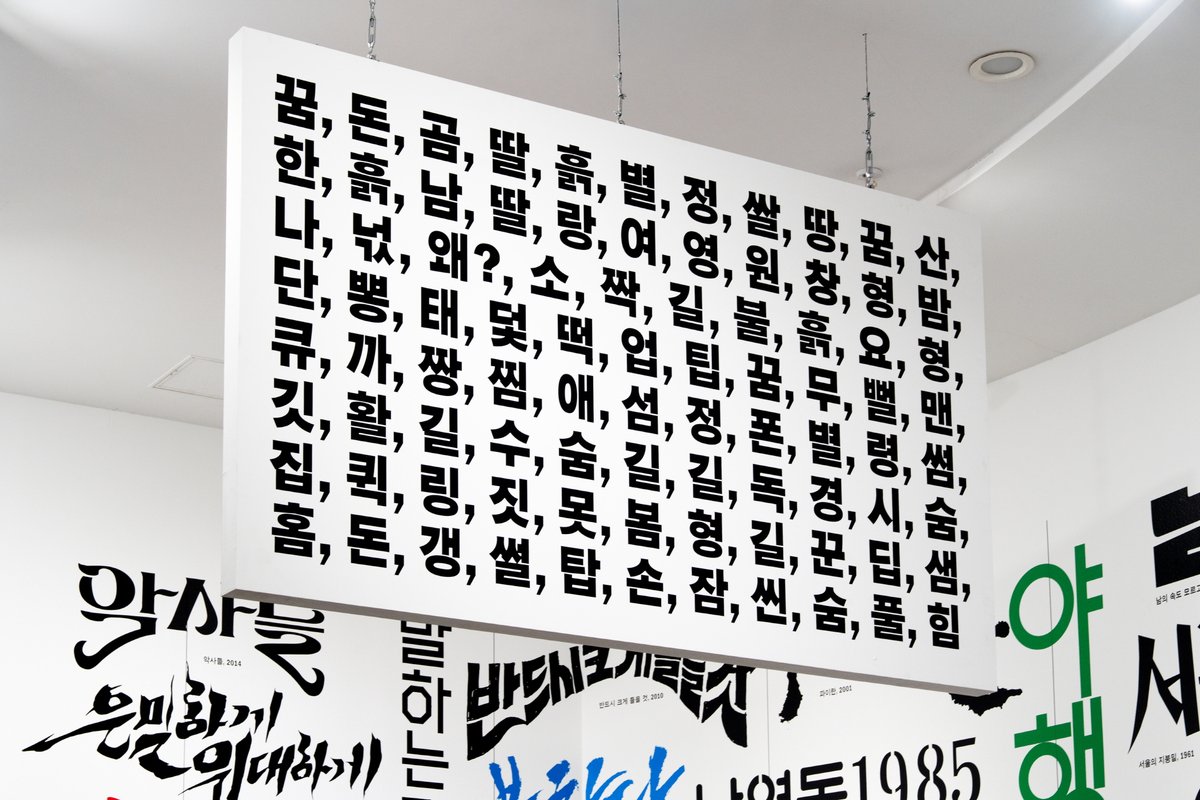 꿈, 돈, 곰, 딸, 흙, 별, 정, 쌀, 땅, 꿈, 산,
한, 흙, 남, 딸, 랑, 여, 영, 원, 창, 형, 밤,
나, 넋, 왜?, 소, 짝, 길, 불, 흙, 요, 형,
단, 뽕, 태, 덫, 떡, 업, 팁, 꿈, 무, 뻘, 맨,
큐, 까, 짱, 찜, 애, 섬, 정, 폰, 별, 령, 썸,
깃, 활, 길, 수, 숨, 길, 길, 독, 경, 시, 숨,
집, 퀵, 링, 짓, 못, 봄, 형, 길, 꾼, 딥, 샘,
홈, 돈, 갱, 썰, 탑, 손, 잠, 씬, 숨, 풀, 힘
악사들
악사들, 2014
은밀하게
위대하게
말하는
반드시 크게 들을 것
반드시 크게 들을 것, 2010
파이란, 2001
남영동1985
야행
서울의 지붕밑, 1961